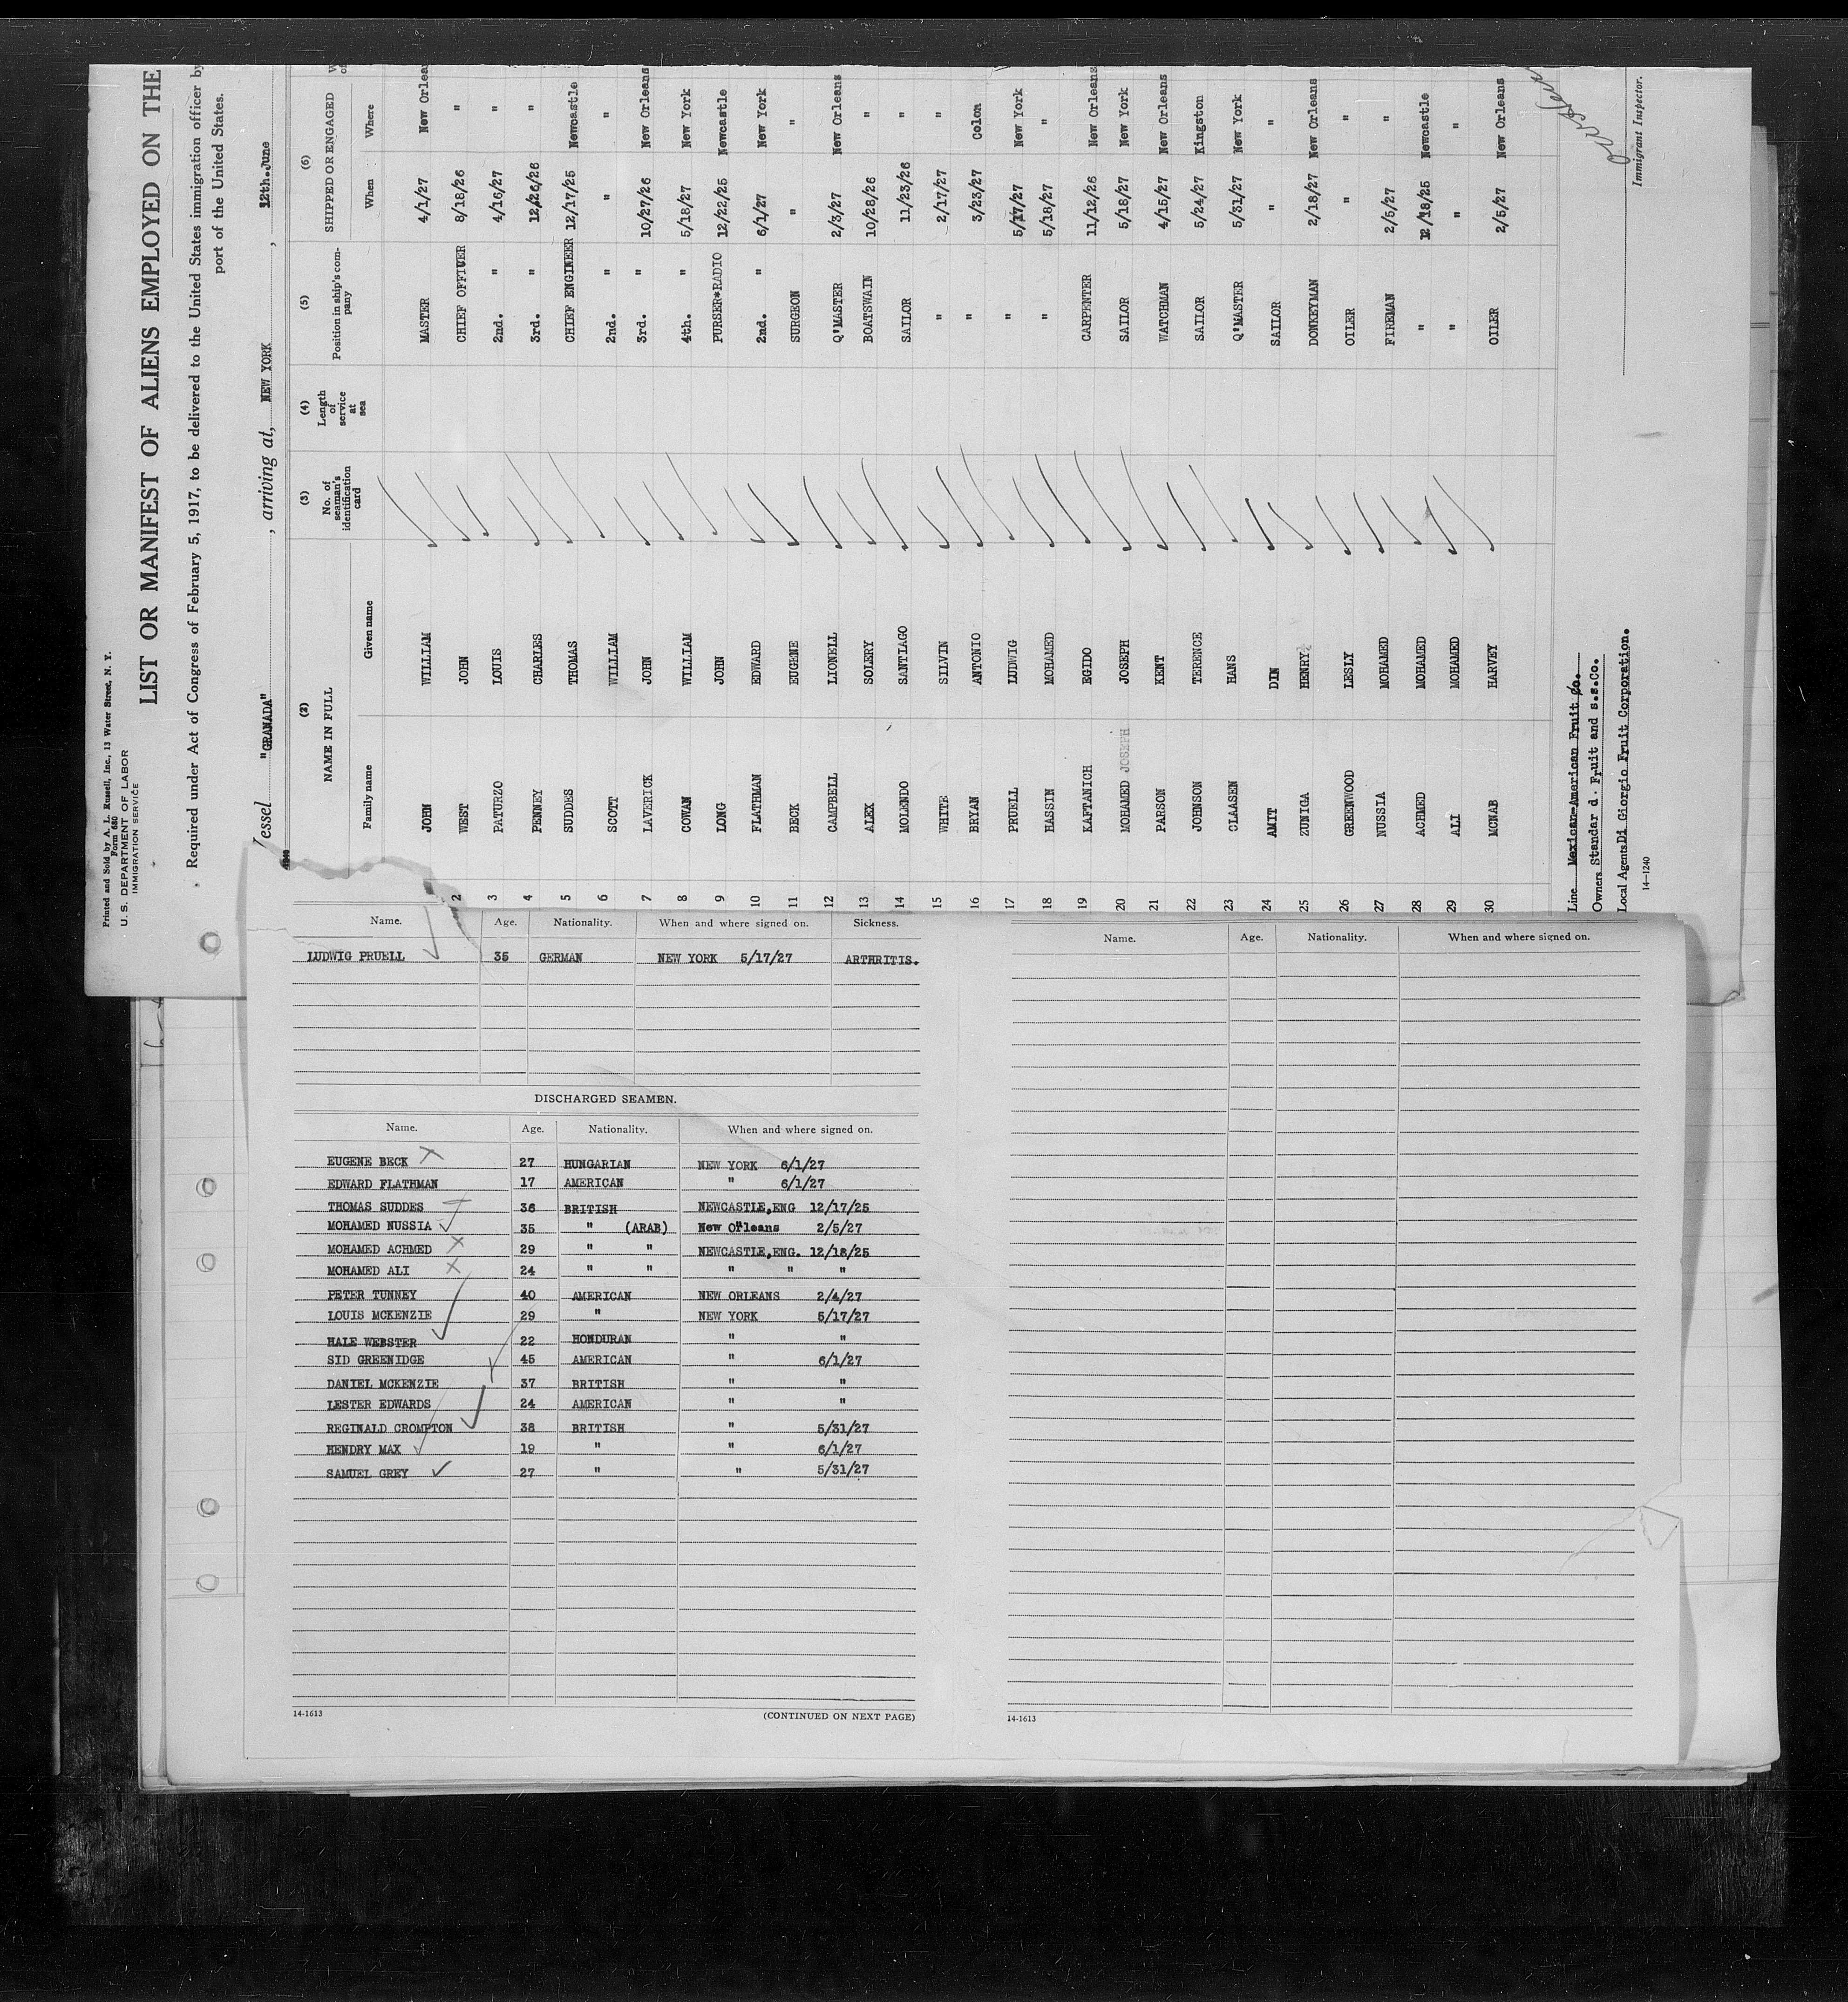 Printed and Sold by A. L. Russell, Inc., 13 Water Street, N. Y.
Form 680
U. S. DEPARTMENT OF LABOR
IMMIGRATION SERVICE
LIST OR MANIFEST OF ALIENS EMPLOYED ON THE
Required under Act of Congress of February 5, 1917, to be delivered to the United States immigration officer by
port of the United States.
Vessel "GRANADA", arriving at, NEW YORK, 12th.June
(2) (3) (4) (5) (6)
NAME IN FULL No. of seaman's identification card Length of service at sea Position in ship's company SHIPPED OR ENGAGED
Family name Given name When Where
JOHN WILLIAM MASTER 4/1/27 New Orlea
2 WEST JOHN CHIEF OFFICER 8/18/26 "
3 PATURZO LOUIS 2nd. " 4/16/27 "
4 PENNEY CHARLES 3rd. " 12/26/26 "
5 SUDDES THOMAS CHIEF ENGINEER 12/17/25 Newcastle
6 SCOTT WILLIAM 2nd. " " "
7 LAVERICK JOHN 3rd. " 10/27/26 New Orleans
8 COWAN WILLIAM 4th. " 5/18/27 New York
9 LONG JOHN PURSER*RADIO 12/22/25 Newcastle
10 FLATHMAN EDWARD 2nd. " 6/1/27 New York
11 BECK EUGENE SURGEON " "
12 CAMPBELL LIONELL Q'MASTER 2/3/27 New Orleans
13 ALEX SOLERY BOATSWAIN 10/28/26 "
14 MOLENDO SANTIAGO SAILOR 11/23/26 "
15 WHITE SILVIN " 2/17/27 "
16 BRYAN ANTONIO " 3/23/27 Colon
17 PRUELL LUDWIG " 5/17/27 New York
18 HASSIN MOHAMED " 5/18/27 "
19 KAFTANICH EGIDO CARPENTER 11/12/26 New Orleans
20 MOHAMED JOSEPH JOSEPH SAILOR 5/18/27 New York
21 PARSON KENT WATCHMAN 4/15/27 New Orleans
22 JOHNSON TERENCE SAILOR 5/24/27 Kingston
23 CLASEN HANS Q'MASTER 5/31/27 New York
24 AMIT DIN SAILOR " "
25 ZUNIGA HENRY DONKEYMAN 2/18/27 New Orleans
26 GREENWOOD LESLY OILER " "
27 NUSSIA MOHAMED FIREMAN 2/5/27 "
28 ACHMED MOHAMED " 12/18/25 Newcastle
29 ALI MOHAMED " " "
30 MCNAB HARVEY OILER 2/5/27 New Orleans
Line Mexican-American Fruit Co.
Owners Standar d. Fruit and S.S.Co.
Local Agents Di Giorgio Fruit Corporation.
Immigrant Inspector.
14—1240
Name. Age. Nationality. When and where signed on. Sickness.
LUDWIG PRUELL 35 GERMAN NEW YORK 5/17/27 ARTHRITIS.
DISCHARGED SEAMEN.
Name. Age. Nationality. When and where signed on.
EUGENE BECK 27 HUNGARIAN NEW YORK 6/1/27
EDWARD FLATHMAN 17 AMERICAN " 6/1/27
THOMAS SUDDES 36 BRITISH NEWCASTLE,ENG 12/17/25
MOHAMED NUSSIA 35 " (ARAB) New Orleans 2/5/27
MOHAMED ACHMED 29 " " NEWCASTLE,ENG. 12/18/25
MOHAMED ALI 24 " " " " "
PETER TUNNEY 40 AMERICAN NEW ORLEANS 2/4/27
LOUIS MCKENZIE 29 " NEW YORK 5/17/27
HALE WEBSTER 22 HONDURAN " "
SID GREENIDGE 45 AMERICAN " 6/1/27
DANIEL MCKENZIE 37 BRITISH " "
LESTER EDWARDS 24 AMERICAN " "
REGINALD CROMPTON 38 BRITISH " 5/31/27
HENDRY MAX 19 " " 6/1/27
SAMUEL GREY 27 " " 5/31/27
14-1613 (CONTINUED ON NEXT PAGE)
Name. Age. Nationality. When and where signed on.
14-1613